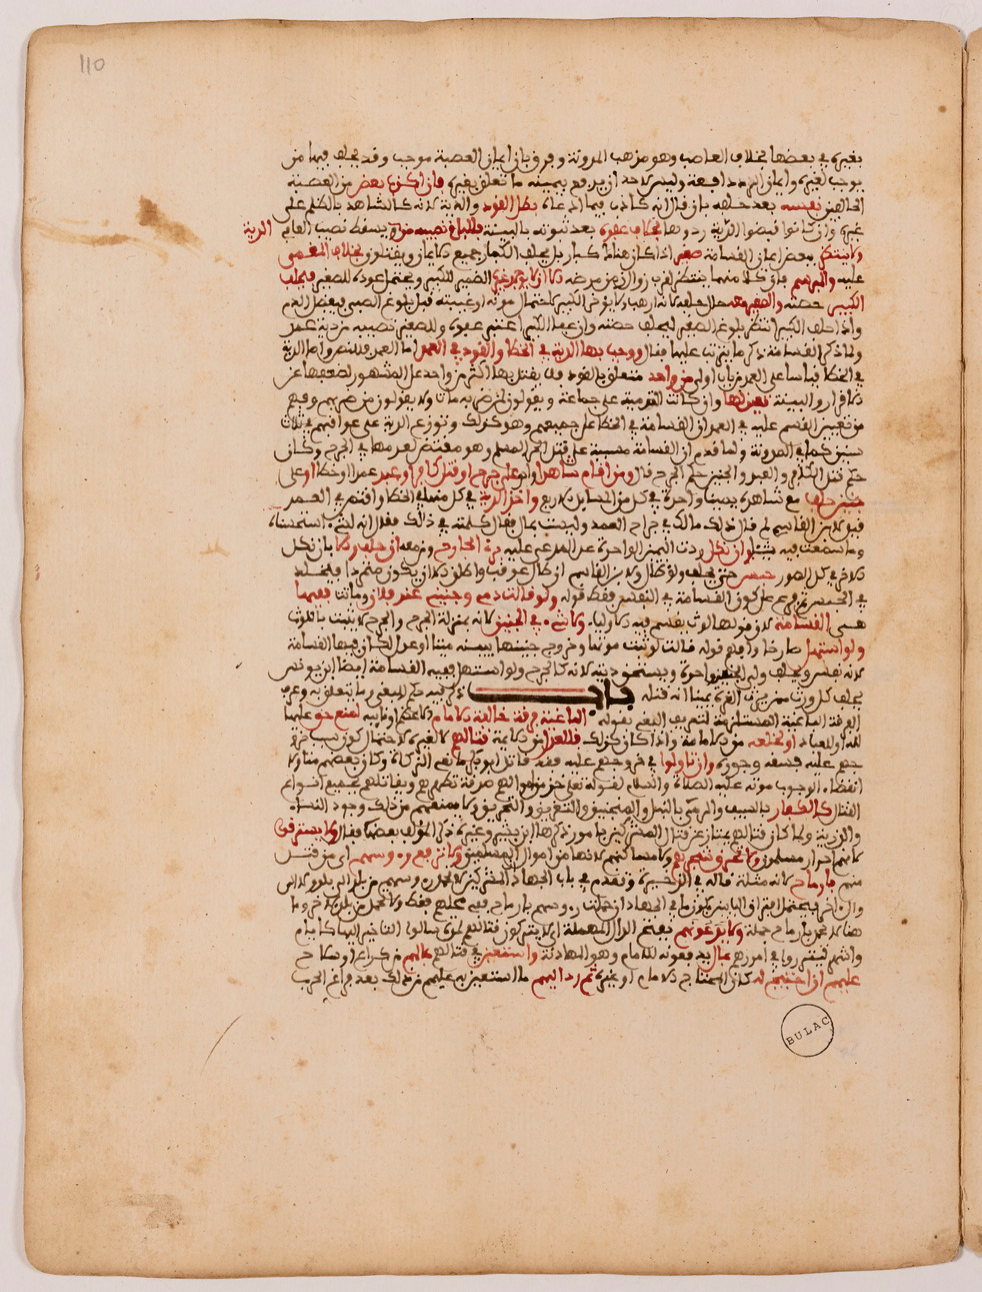 110
بغيره في بعضها بخلاف الغاصب وهو مذهب المدونة وفرق بان ايمان العصبة موجب وقد يحلف فيها من
يوجب لغيره وايمان دافعة وليس لاحد ان يدفع بيمينه ما تعلق بغيره فان اكذب بعض من العصبة
الحالفين نفسه بعد حلفه بان قال انه كاذب فيما ادعاه بطل القود والدية لانه كالشاهد بالكلم على
غيره وان كانوا قبضوا الدية ردوها بخلاف عفوه بعد ثبوته بالبينة فللباقي نصيبه من الدية يسقط نصيب العافي
ولا ينتظر ببعض ايمان القسامة صغير اذا كان هناك كبار بل يحلف الكبار جميع الايمان ويقتلون بخلاف المغمى
عليه والمبرسم فان كلا منهما ينتظر لقرب زوال مرضه الا ان لا يوجد غيره الضمير للكبير ويحتمل عوده للصغير فيحلف
الكبير حصته والصغير معه حال حلفه لانه ارهب ولا يؤخر الكبير لاحتمال موته او غيبته قبل بلوغ الصبي فيبطل الدم
واذا حلف الكبير انتظر بلوغ الصغير ليحلف حصته وان عفا الكبير اعتبر عفوه وللصغير نصيبه من دية عمد
ولما ذكر القسامة ذكر ما يترتب عليها فقال ووجب بها الدية في الخطأ والقود في العمد اما العمد فللنص واما الدية
في الخطأ فقياسا على العمد من باب اولى من واحد متعلق بالقود فلا يقتل بها اكثر من واحد على المشهور لضعفها عن
الاقرار والبينة تعين لها وان كانت التدمية على جماعة و يقولون لمن ضربه مات ولا يقولون من ضربهم وقع
من تعيين القسم عليه في العمد ان القسامة في الخطأ على جميعهم وهو كذلك وتوزع الدية على عواقلهم في ثلاث
سنين كما في المدونة ولما قدم ان القسامة مسببة على قتل الحر المسلم وهو مقتض لعدمها في الجرح وكان
حكم قتل الكافر و العبد والجنين حكم الجرح قال ومن اقام شاهدا على جرح او قتل كافر او عبد عمدا او خطأ او على
جنين حلف مع شاهده يمينا واحدة في كل من المسايل الاربع واخذ الدية في كل منها في الخطأ واقتص في العمد
قيل لابن القاسم لم قال ذلك مالك في جراح العمد وليست بمال فقال كلمته في ذلك فقال انه لشيء استحسناه
وما سمعت فيه شيئا وان نكل ردت اليمين الواحدة على المدعى عليه برئ الجارح وفهم ان حلف والا بان نكل
الاخر في كل الصور حبس حتى يحلف ولو طال ولابن القاسم ان طال عوقب واطلق الا ان يكون متمردا فيخلد
في الحبس ثم فرع على كون القسامة في النفس فقط قوله ولو قالت دمي وجنيني عند فلان وماتت ففيها
هي القسامة لان قولها لوث يقسم فيه الاولياء ولا شيء في الجنين لانه بمنزلة الجرح والجرح لا يثبت باللوث
ولو استهل صارخا وافهم قوله قالت لو ثبت موتها وخروج جنينها ببينة ميتا او عدل لكان فيها القسامة
لانه نفس ويحلف ولي الجنين واحدة ويستحق ديته لانه كالجرح ولو استهل ففيه القسامة ايضا ابن يونس
يحلف كل وارث ممن يرث الغرة يمينا انه قتله باب ذكر فيه حكم البغي وما يتعلق به وعرف
الفرقة الباغية المستلزمة لتعريف البغي بقوله الباغية فرقة خالفت الامام الاعظم او نايبه لمنع حق عليها
لله او للعباد او لخلعه من الامامة واذا كان كذلك فللعدل من الايمة قتالهم لا لغيره لاحتمال كون سبب خرو
جهم عليه فسقه وجوره وان تاولوا في خروجهم عليه فقد قاتل ابو بكر مانعي الزكاة وكان بعضهم متاولا
انقضاء الوجوب بموته عليه الصلاة والسلام لقوله تعلى خذ من اموالهم صدقة تطهرهم ويقاتلهم بجميع انواع
القتال كالكفار بالسيف والرمي بالنبل والمنجنيق والتغريق والتحريق ولا يمنعهم من ذلك وجود النساء
والذرية ولما كان قتالهم يمتاز عن قتال المشركين بامور ذكرها ابن بشير وغيره ذكر المؤلف بعضها فقال ولا يسترقوا
لانهم احرار مسلمون ولا يحرق شجرهم ولا مساكنهم لانها من اموال المسلمين ولا ترفع رءوسهم اي من قتل
منهم بارماح لانه مثلة قاله في الذخيرة وتقدم في باب الجهاد المشركين لا تحمل رءوسهم من بلد الى بلد ولا الى
وال اخر فيحتمل افتراق البابين يكون ما في الجهاد ان حملت رءوسهم بارماح ففي محلهم فقط ولا تحمل من بلد لاخر وما
هنا لا تحمل بارماح جملة ولا يدعوهم بفتح الدال المهملة اي لا يتركون قتالهم لو سالوا التاخير اياما كايام
واشهر لينتظروا في امورهم بمال يدفعونه للامام وهو المهادنة واستعين في قتالهم بمالهم من كراع وسلاح
عليهم ان احتيج له كان المحتاج الامام او غيره ثم رد اليهم ما استعين به عليهم من ذلك بعد فراغ الحرب
BULAC